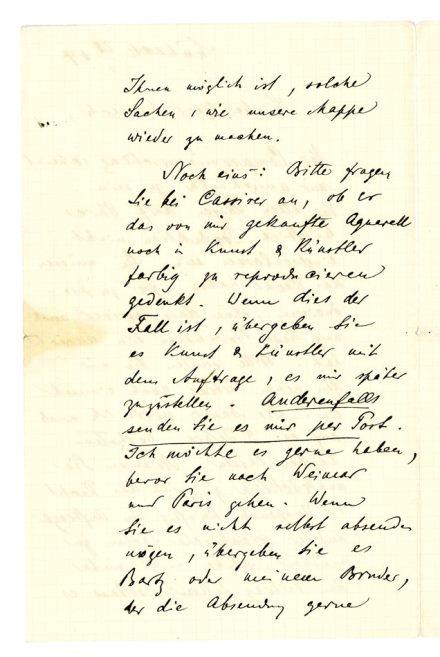 Ihnen möglich ist, solche
Sachen, wie unsere Mappe
wieder zu machen.
Noch eins: Bitte fragen
Sie bei Cassirer an, ob er
das von mir gekaufte Aquarell
noch in Kunst & Künstler
farbig zu reproducieren
gedenkt. Wenn dies der
Fall ist, übergeben Sie
es Kunst & Künstler mit
dem Auftrage, es mir später
zuzustellen. Anderenfalls
senden Sie es mir per Post.
Ich möchte es gerne haben,
bevor Sie nach Weimar
und Paris gehen. Wenn
Sie es nicht selbst absenden
mögen, übergeben Sie es
Bartz oder meinem Bruder,
der die Absendung gerne